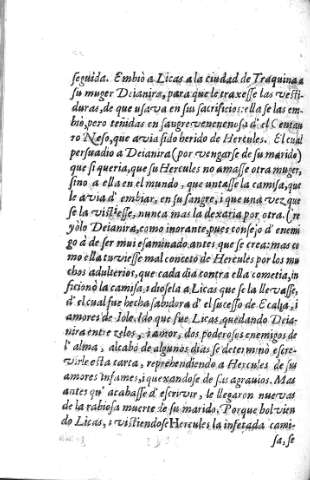 seguida. Embiò a Licas a la ciudad de Traquina a
su muger Deianira, para que le traxesse las vesti-
duras, de que usava en sus sacrificios: ella se las em-
biò, pero teñidas en sangre venenenosa d'el Centau
ro Neso, que avia sido herido de Hercules. El cual
persuadio a Deianira (por vengarse de su marido)
que si queria, que su Hercules no amasse otra muger,
sino a ella en el mundo, que untasse la camisa, que
le avia d'embiar, en su sangre, i que una vez que
se la vistiesse, nunca mas la dexaria por otra. Cre
yòlo Deianira, como inorante, pues consejo d'enemi
go à de ser mui esaminado antes que se crea: mas co
mo ella tuviesse mal conceto de Hercules por los mu
chos adulterios, que cada dia contra ella cometia, in
ficionò la camisa, i diosela a Licas que se la llevasse,
d'el cual fue hecha sabidora d'el sucesso de Ecalia, i
amores de Iole. Ido que fue Licas, quedando Deia-
nira entre zelos, i amor, dos poderosos enemigos de
l'alma, al cabo de algunos dias se determinò escre-
virle esta carta, reprehendiendo a Hercules de sus
amores infames, i quexandose de sus agravios. Mas
antes qu'acabasse d'escrevir, le llegaron nuevas
de la rabiosa muerte de su marido. Porque bolvien
do Licas, i vistiendose Hercules la infetada cami-
sa, se